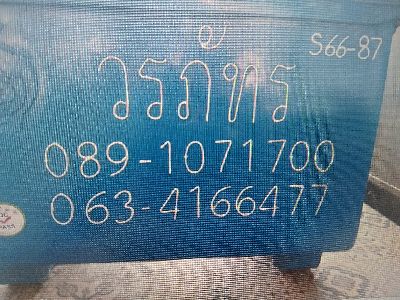 S66-87
วรภัทร
089-1071700
063-4166477